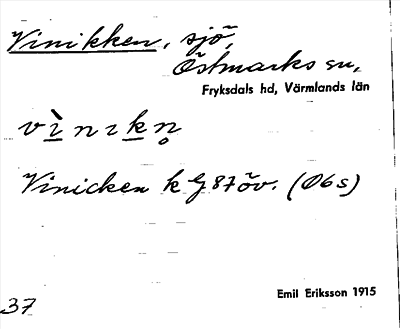 Vinikken, sjö,
Östmarks sn,
Fryksdals hd, Värmlands län
vìnıkn̥
Vinicken k G 87 öv. (Ö6s)
Emil Eriksson 1915
37